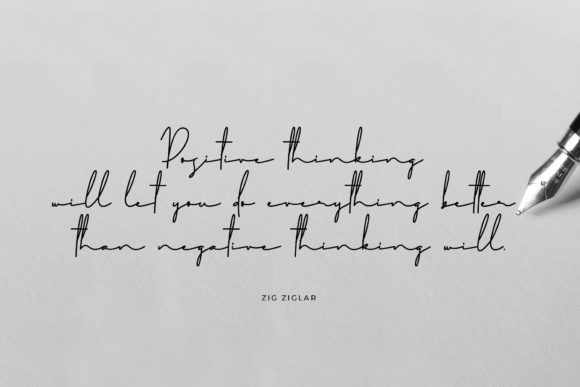 Positive thinking
will let you do everything better
than negative thinking will.
ZIG ZIGLAR